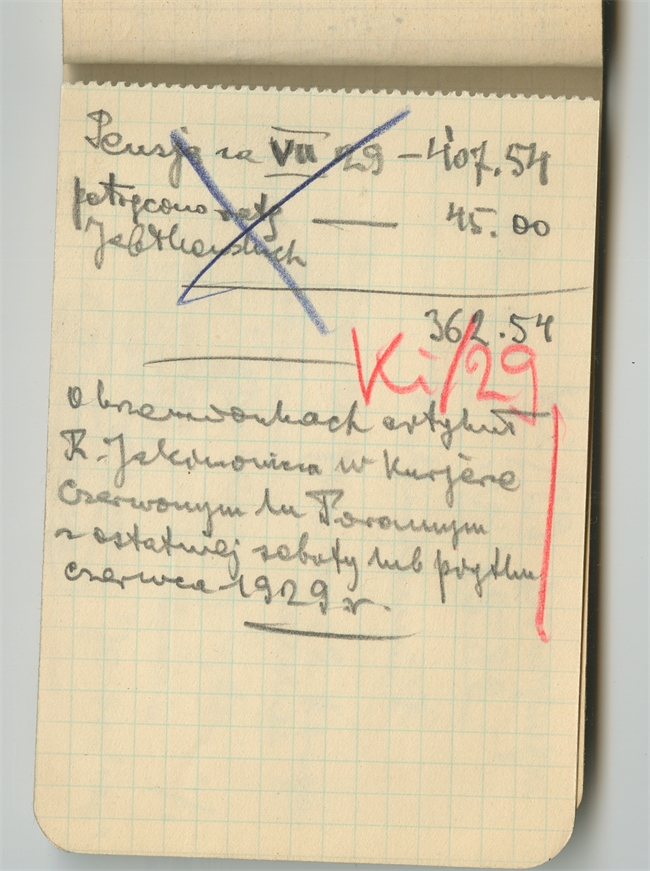 Pensja za VII 29 – 407.54
potrącono raty — 45.00
Jabłkowskich
362.54
Ki/29
o krzemionkach artykuł
R. Jakimowicza w Kurjerze
Czerwonym lub Porannym
z ostatniej soboty lub piątku
czerwca 1929 r.